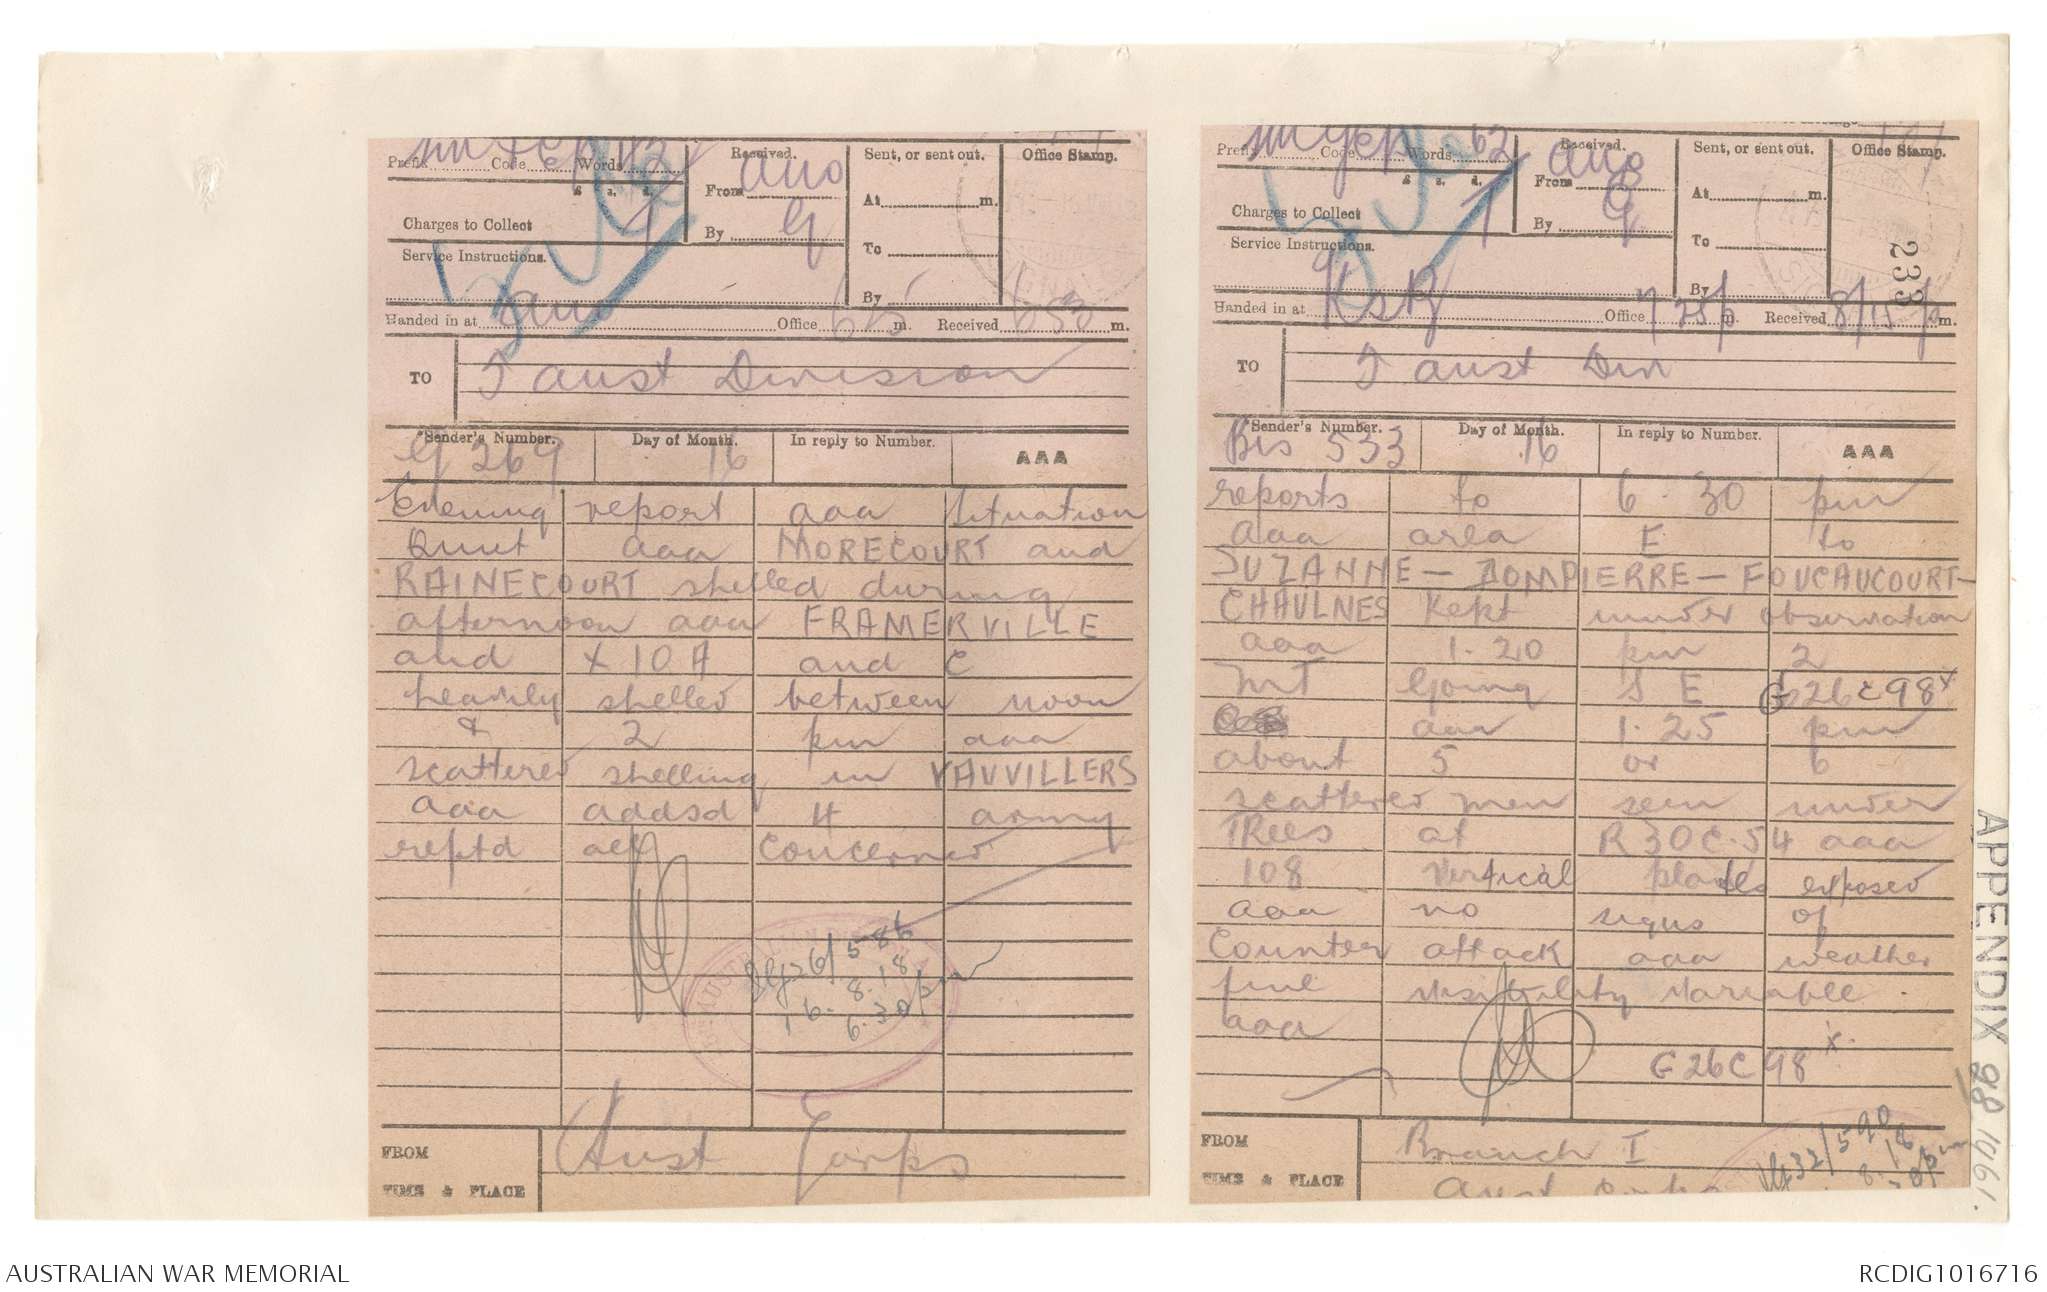 Prefix Code Words
£ s. d.
Charges to Collect
Service Instructions.
Received.
From
By G
Sent, or sent out.
At m.
To
By
Office Stamp.
Handed in at Office m. Received 653 m.
TO
Aust Division
Sender's Number. Day of Month. In reply to Number. AAA
G 269 16
Evening report aaa Situation
Quiet aaa MORECOURT and
RAINECOURT shelled during
afternoon aaa FRAMERVILLE
and X 10 A and C
heavily shelled between noon
& 2 pm aaa
scattered shelling in VAUVILLERS
aaa addsd 4 army
reptd all concerned
586
16.8.18
6.30 pm
FROM
Aust Corps
TIME & PLACE
Prefix Code Words 62
£ s. d.
Charges to Collect
Service Instructions.
Received.
From
By
Sent, or sent out.
At m.
To
By
Office Stamp.
233
Handed in at Office 7 25p m. Received 8/15 p m.
TO
Aust Div
Sender's Number. Day of Month. In reply to Number. AAA
Bis 533 16
reports to 6.30 pm
aaa area E to
SUZANNE – DOMPIERRE – FOUCAUCOURT –
CHAULNES Kept under observation
aaa 1.20 pm 2
MT Going S E G26c98 x
aaa 1.25 pm
about 5 or 6
scattered men seen under
TRees at R30C.54 aaa
108 Vertical plates exposed
aaa no signs of
Counter attack aaa weather
fine visibility Variable.
aaa
G26C98 x.
FROM
Branch I
TIME & PLACE
Aust Corps
APPENDIX 98 1461.
AUSTRALIAN WAR MEMORIAL
RCDIG1016716